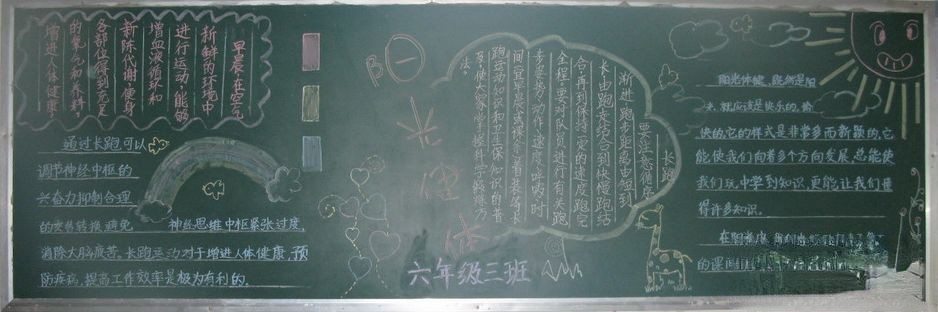 早晨在空气
新鲜的环境中
进行运动,能够
增血液循环和
新陈代谢,使身
各部位得到充足
的氧气和养料。
增进人体健康
通过长跑可以
调节神经中枢的
兴奋力抑制合理
的交替转换避免
神经思维中枢紧张过度,
消除大脑疲苦。长跑运动对于增进人体健康,预
防疾病,提高工作效率是极为有利的.
阳光体健
长跑
要注意循序
渐进,跑步距离由短到
长由跑走结合到快慢跑结
合,再到保持一定的速度跑完
全程要对队员进行有关跑
步姿势、动作、速度、呼吸、时
间宜早晨或课余、着装等长
跑运动知识和卫生保健知识的普
及,使大家掌握科学锻炼方
法。
六年级三班
阳光体健,既然是阳
光,就应该是快乐的、愉
快的,它的样式是非常多而新颖的,它
能使我们向着多个方向发展,总能使
我们玩中学到知识,更能让我们懂
得许多知识.
在阳光
的课